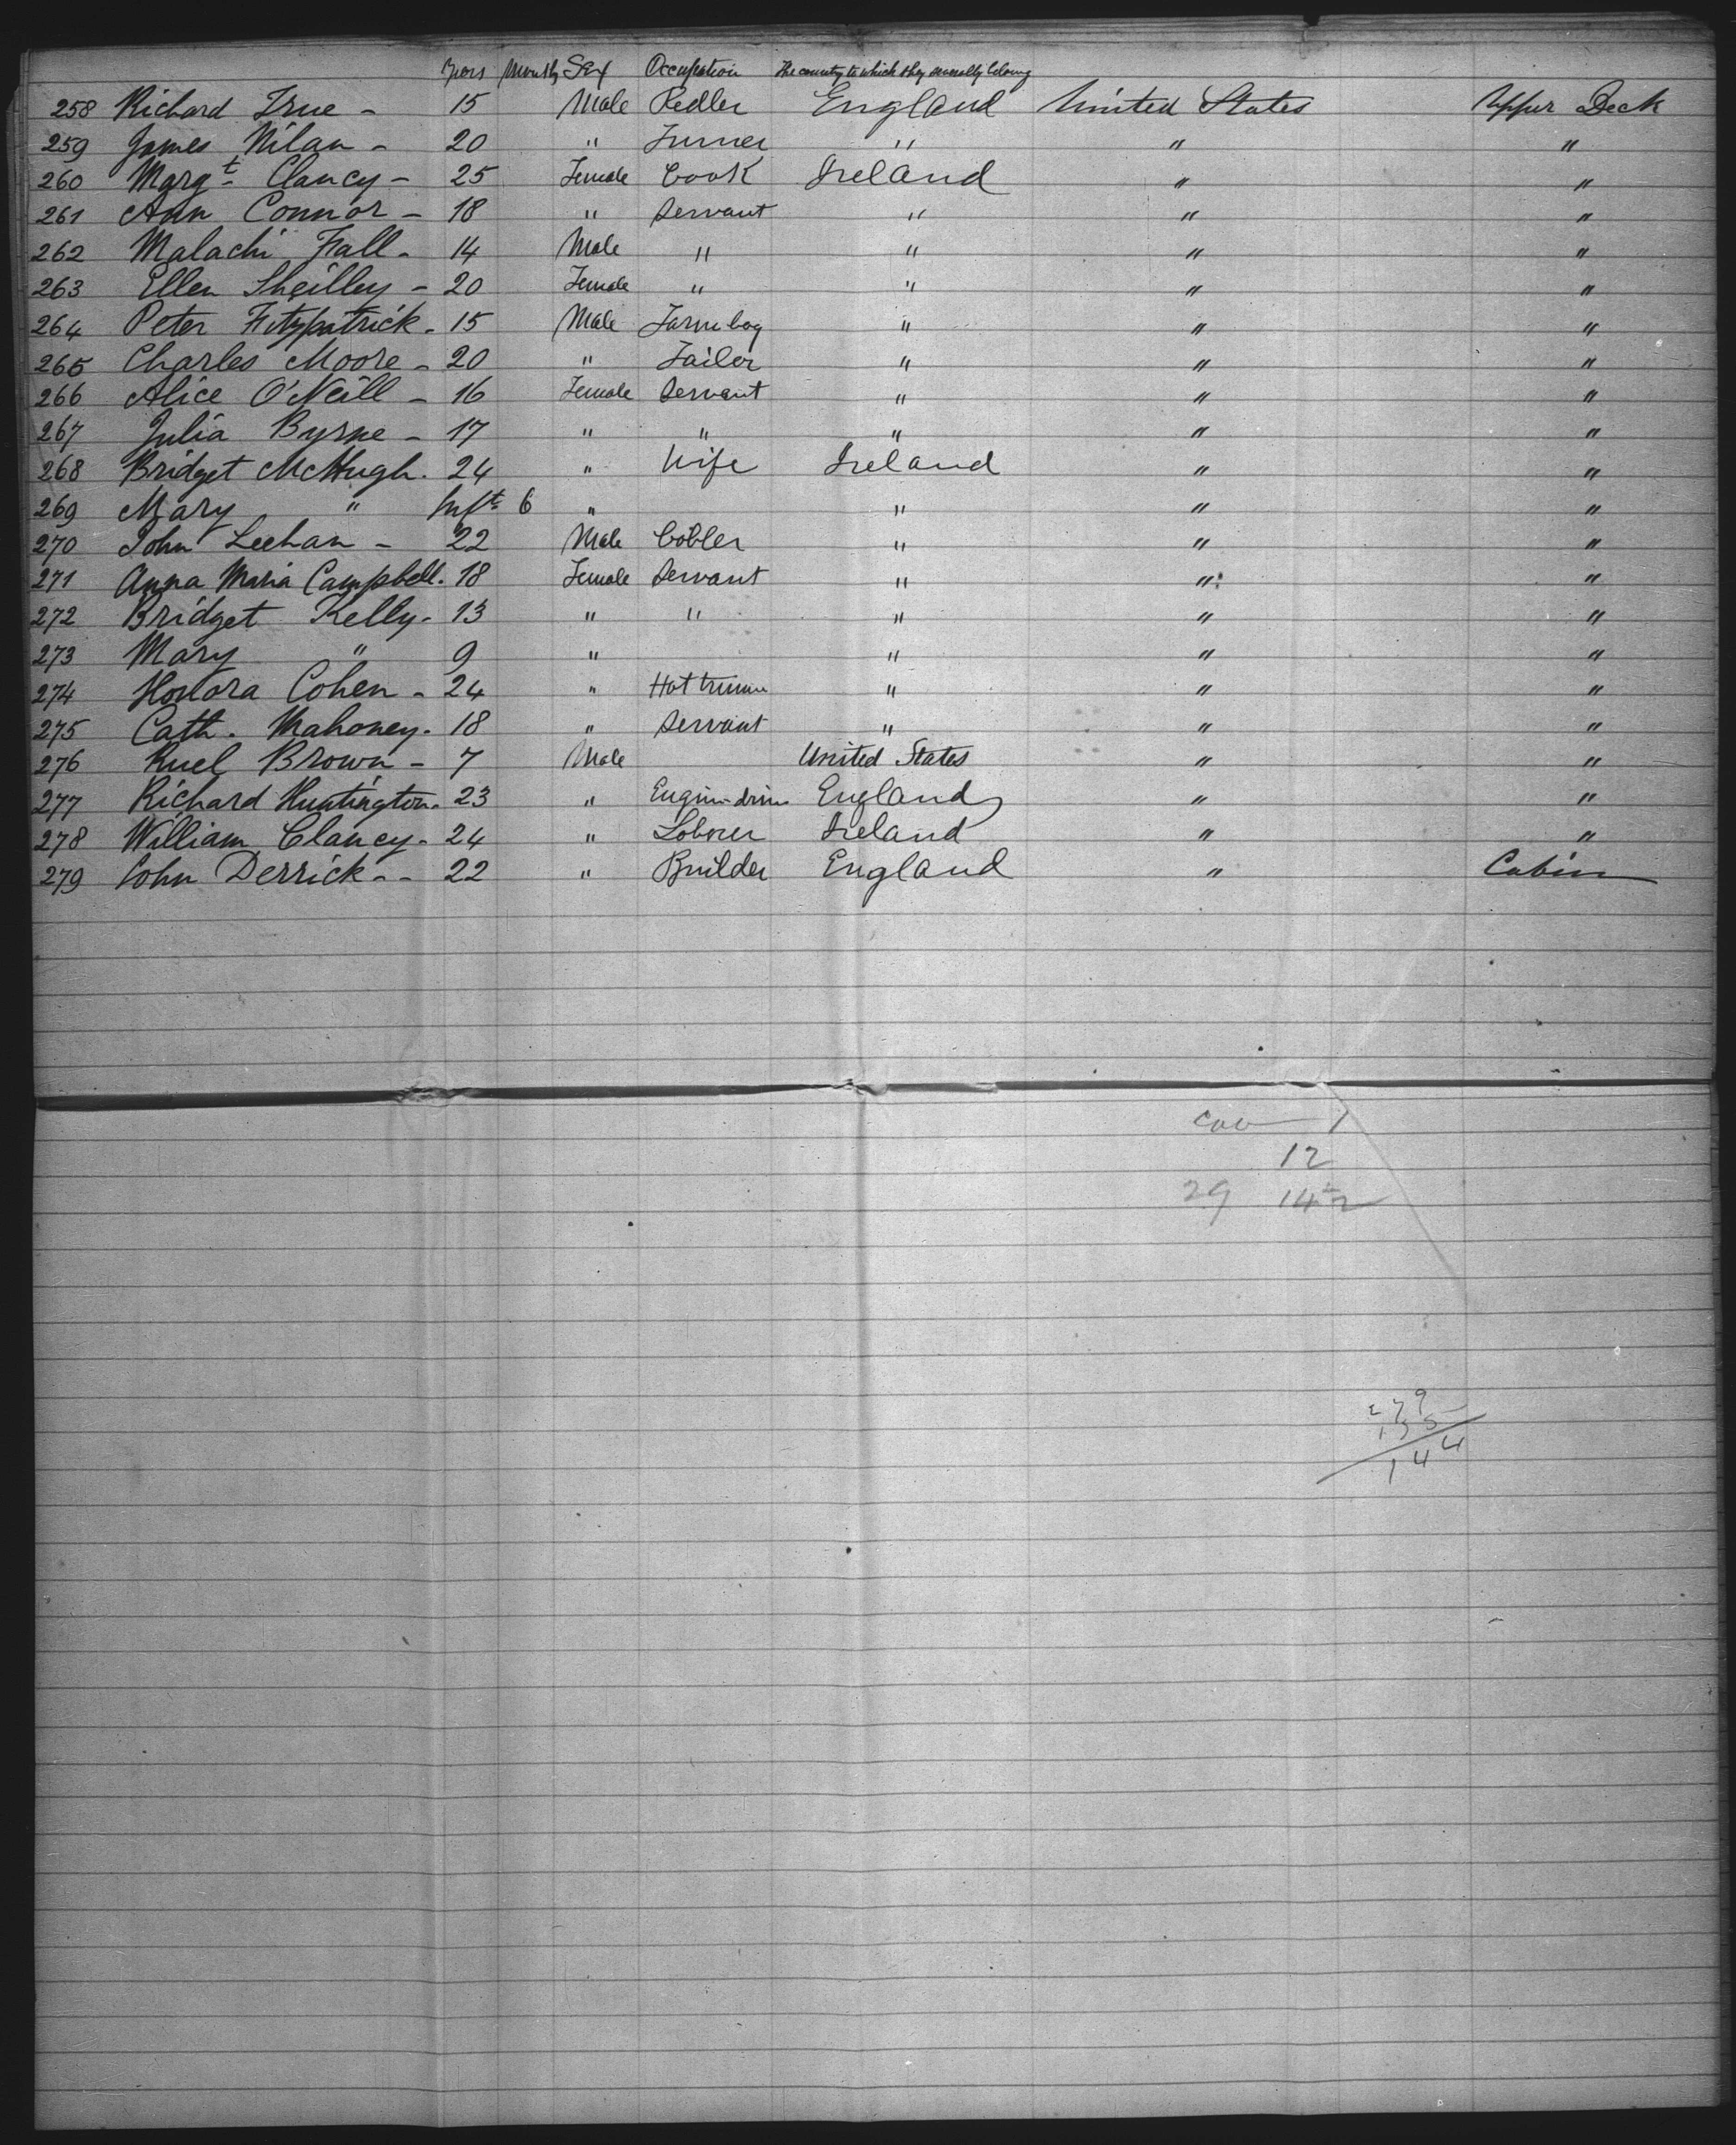 Years Months Sex Occupation The country to which they severally belong
258 Richard True - 15 Male Pedler England United States Upper Deck
259 James Nilan - 20 " Turner " " "
260 Margt Clancy - 25 Female Cook Ireland " "
261 Ann Connor - 18 " Servant " " "
262 Malachi Fall - 14 Male " " " "
263 Ellen Sheilley - 20 Female " " " "
264 Peter Fitzpatrick - 15 Male Farm boy " " "
265 Charles Moore - 20 " Tailor " " "
266 Alice O'Neill - 16 Female Servant " " "
267 Julia Byrne - 17 " " " " "
268 Bridget McHugh - 24 " Wife Ireland " "
269 Mary " Inft 6 " " " "
270 John Leehan - 22 Male Cobler " " "
271 Anna Maria Campbell - 18 Female Servant " " "
272 Bridget Kelly - 13 " " " " "
273 Mary " 9 " " " "
274 Honora Cohen - 24 " Hat " " "
275 Cath. Mahoney - 18 " Servant " " "
276 Ruel Brown - 7 Male United States " "
277 Richard Huntington - 23 " England " "
278 William Clancy - 24 " Laborer Ireland " "
279 John Derrick - - 22 " Builder England " Cabin
1
12
29 142
279
135
144